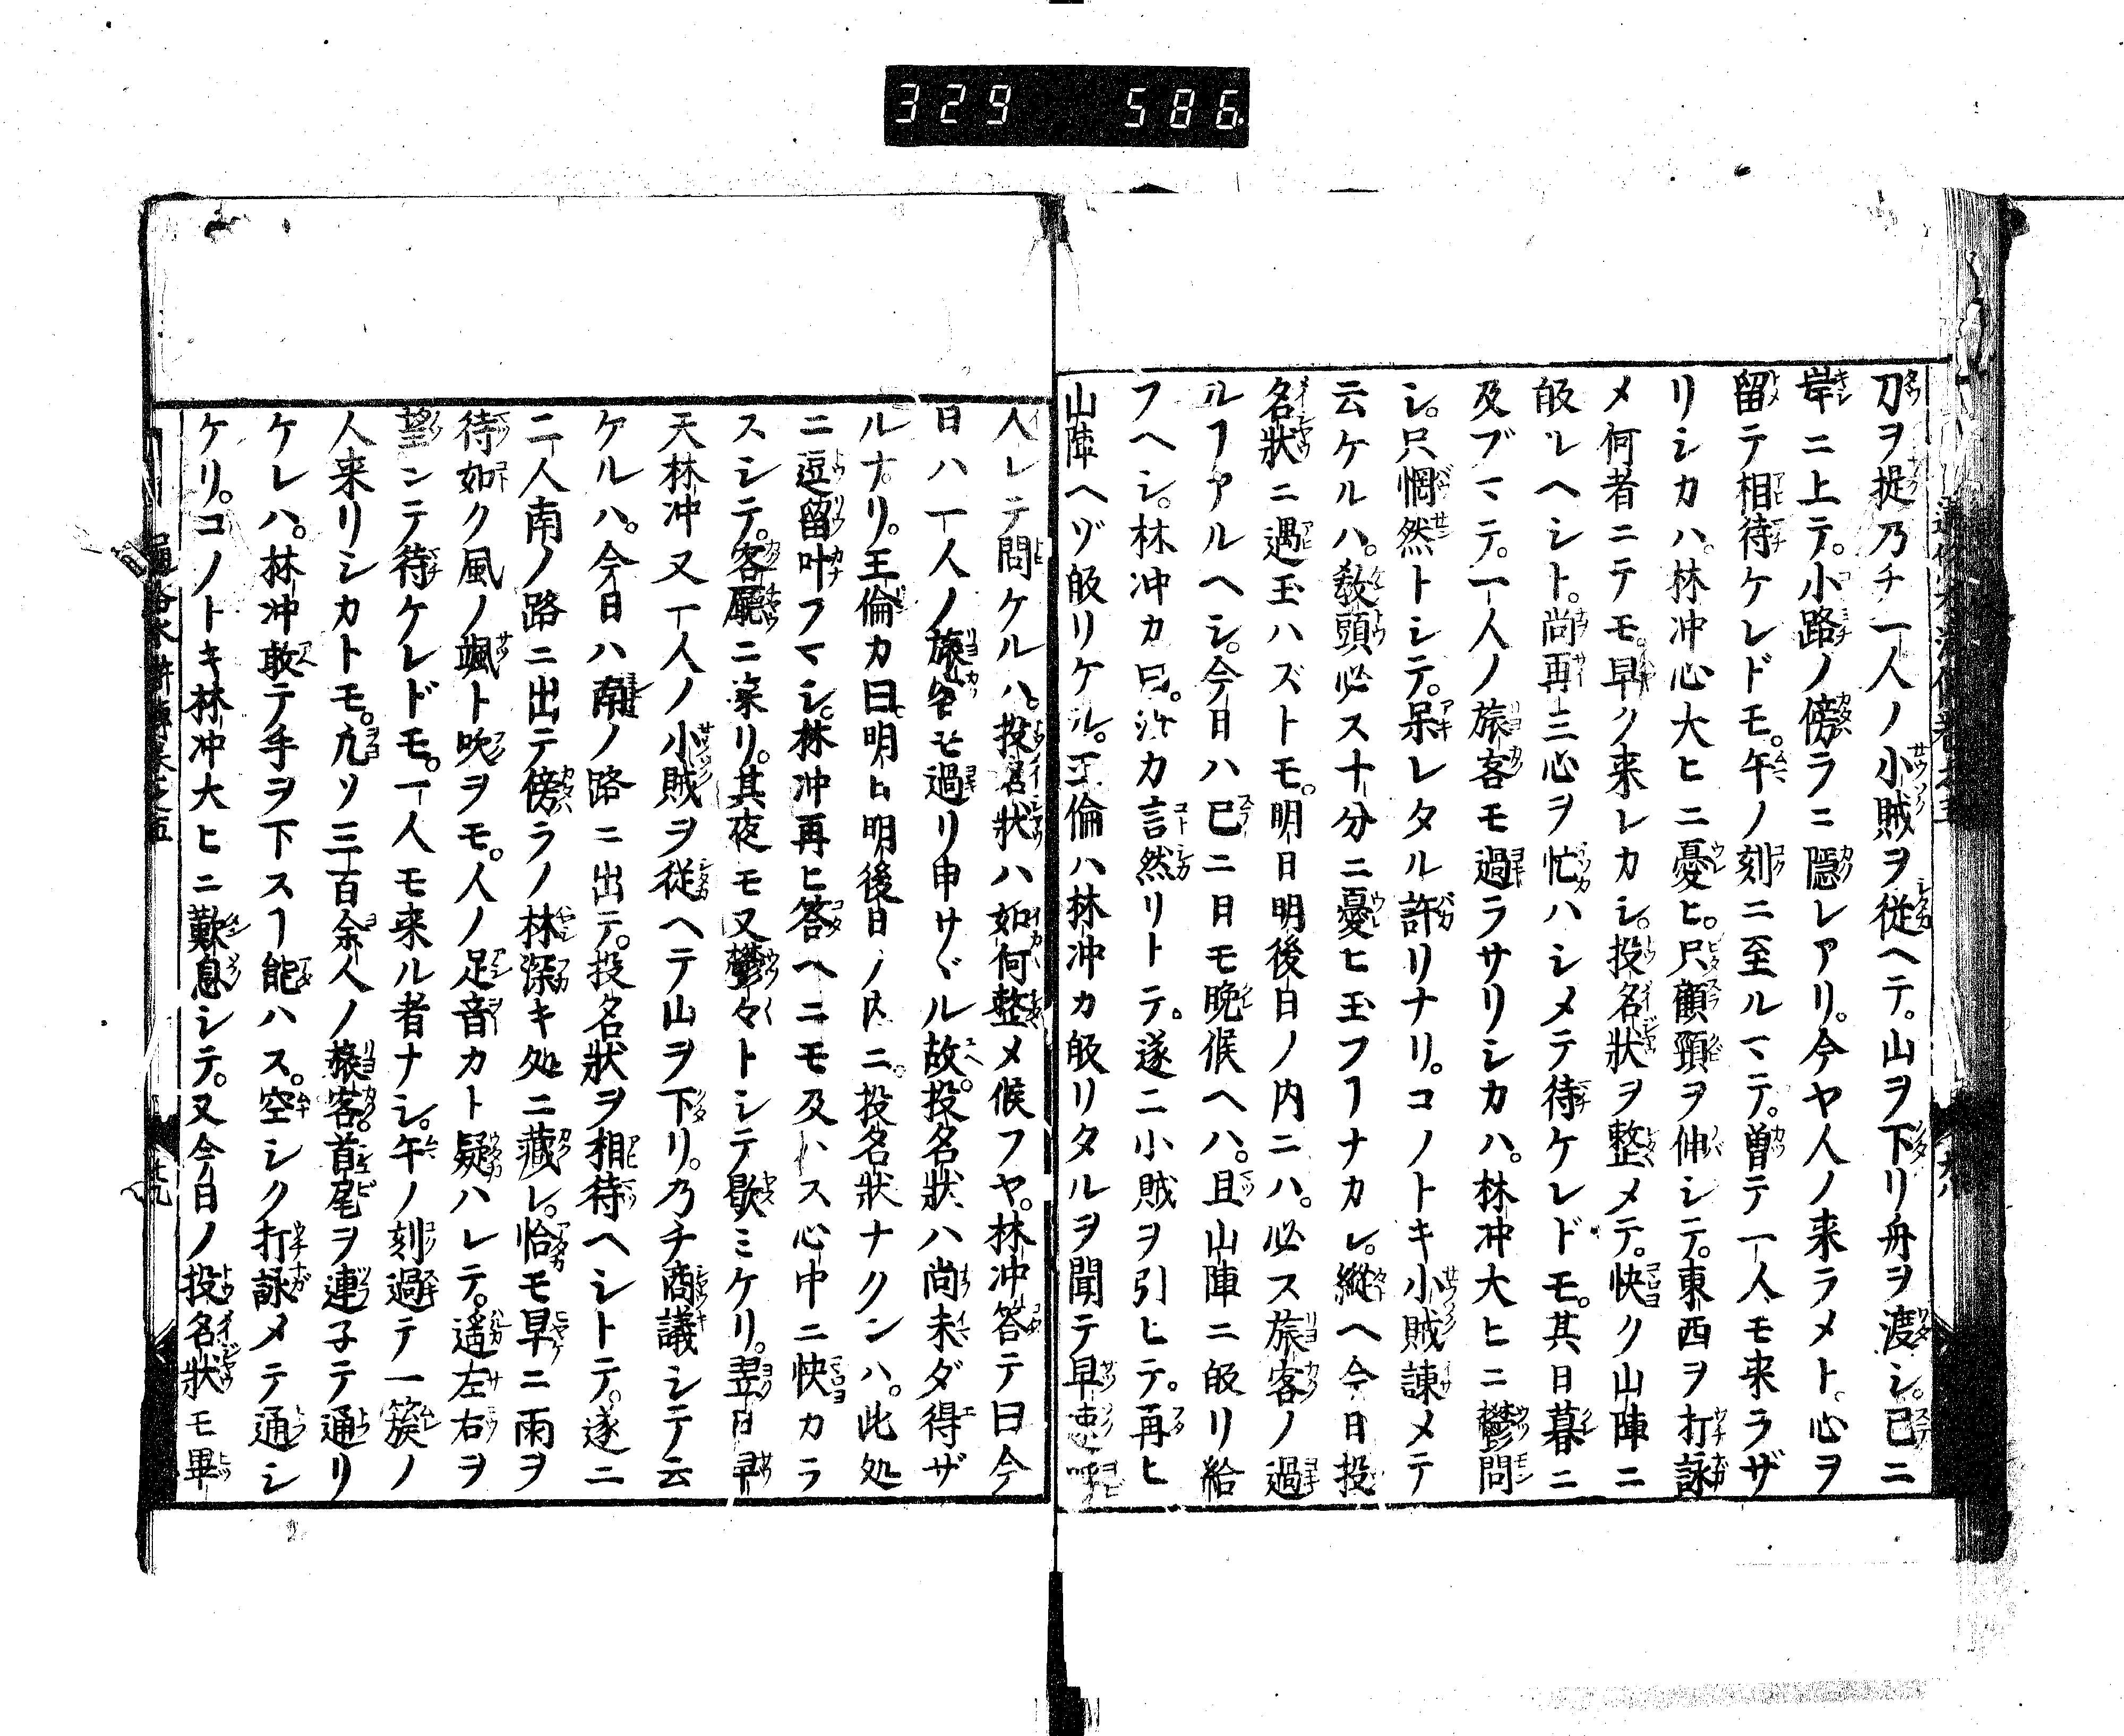 329 586
刀ヲ提乃チ一人ノ小賊ヲ従ヘテ。山ヲ下リ舟ヲ渡シ。已ニ
岸ニ上テ。小路ノ傍ラニ隠レアリ。今ヤ人ノ来ラメト。心ヲ
留テ相待ケレドモ。午ノ刻ニ至ルマテ。曽テ一人モ来ラザ
リシカハ。林冲心大ヒニ憂ヒ。只顧頸ヲ伸シテ。東西ヲ打詠
メ何者ニテモ。早ク来レカシ。投名状ヲ整メテ。快ク山陣ニ
皈ルヘシト。尚再三心ヲ忙ハシメテ待ケレドモ。其日暮ニ
及ブマテ。一人ノ旅客モ過ラサリシカハ。林冲大ヒニ鬱問
シ。只惘然トシテ。呆レタル許リナリ。コノトキ小賊諌メテ
云ケルハ。教頭必ス十分ニ憂ヒ玉フヿナカレ。縦ヘ今日投
名状ニ遇玉ハズトモ。明日明後日ノ内ニハ。必ス旅客ノ過
ルヿアルヘシ。今日ハ已ニ日モ晩候ヘハ。且山陣ニ皈リ給
フヘシ。林冲カ曰。汝カ言然リトテ。遂ニ小賊ヲ引ヒテ。再ヒ
山陣ヘゾ皈リケル。王倫ハ林冲カ皈リタルヲ聞テ早速呼
人レテ問ケルハ。投名状ハ如何整メ候フヤ。林冲答テ曰今
日ハ一人ノ旅客モ過リ申サヾル故。投名状ハ尚未ダ得ザ
ルナリ。王倫カ曰明日明後日ノ内ニ。投名状ナクンハ。此処
ニ逗留叶フマシ。林冲再ヒ答ヘニモ及ハス心中ニ快カラ
スシテ。客廰ニ来リ。其夜モ又鬱々トシテ歇ミケリ。翌日早
天林冲又一人ノ小賊ヲ従ヘテ山ヲ下リ。乃チ商議シテ云
ケルハ。今日ハ南ノ路ニ出テ。投名状ヲ相待ヘシトテ。遂ニ
二人南ノ路ニ出テ傍ラノ林深キ処ニ藏レ。恰モ早ニ雨ヲ
待如ク風ノ颯ト吹ヲモ。人ノ足音カト疑ハレテ。遥左右ヲ
望ンテ待ケレドモ。一人モ来ル者ナシ。午ノ刻過テ一簇ノ
人来リシカトモ。凢ソ三百余人ノ旅客。首尾ヲ連子テ通リ
ケレハ。林冲敢テ手ヲ下スヿ能ハス。空シク打詠メテ通シ
ケリ。コノトキ林冲大ヒニ歎息シテ。又今日ノ投名状モ畢